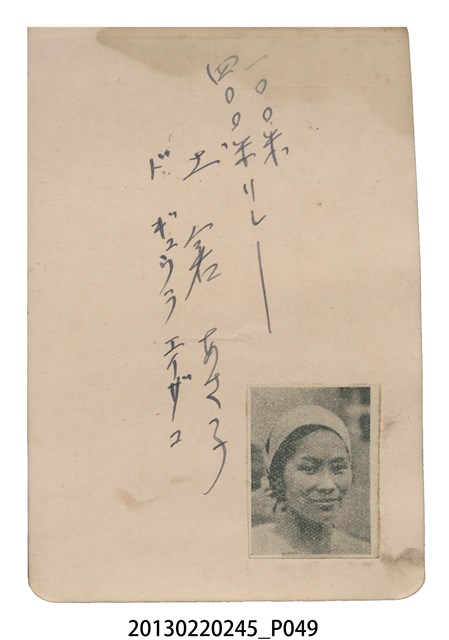 一〇〇米
四〇〇米リレー
土倉 あさ子
ド ギュウラ エイザコ
20130220245_P049